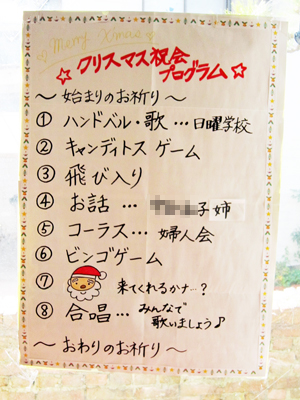 Merry Xmas
☆クリスマス祝会
プログラム☆
〜始まりのお祈り〜
① ハンドベル・歌…日曜学校
② キャンディトス ゲーム
③ 飛び入り
④ お話… 子姉
⑤ コーラス…婦人会
⑥ ビンゴゲーム
⑦ 来てくれるかナ…?
⑧ 合唱…みんなで
歌いましょう♪
〜おわりのお祈り〜